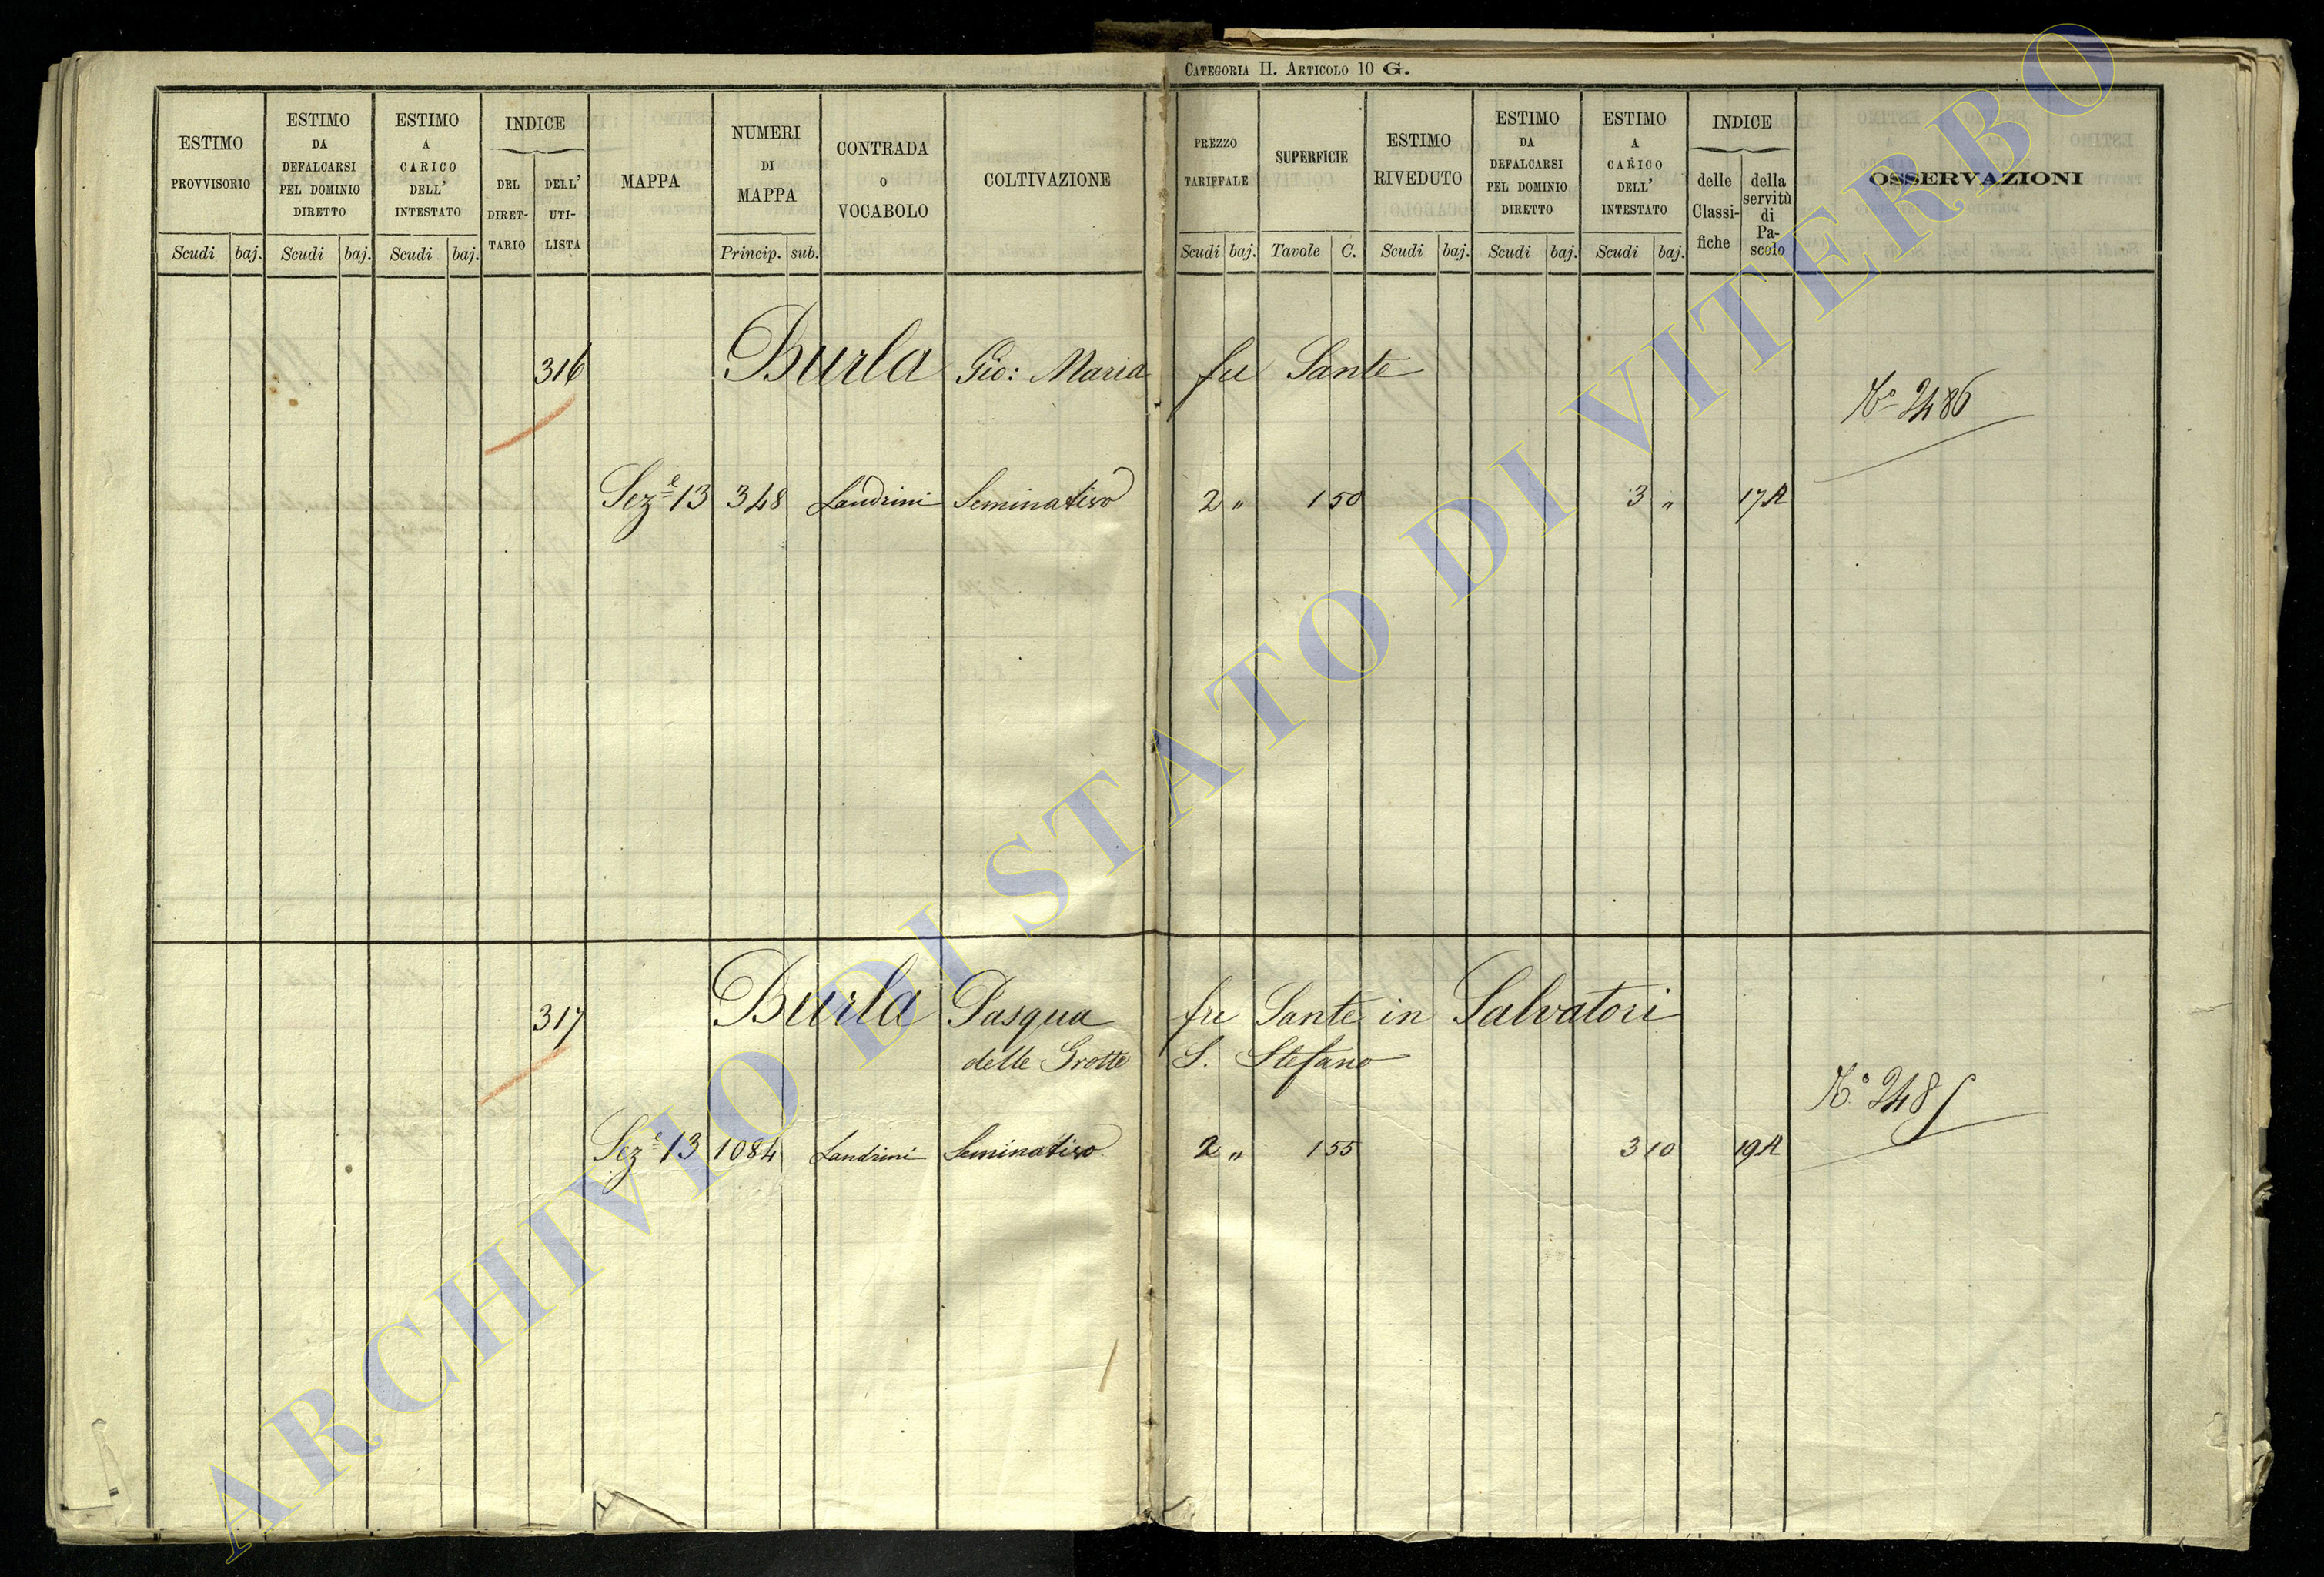 CATEGORIA II. ARTICOLO 10 G.
ESTIMO PROVVISORIO
Scudi baj.
ESTIMO DA DEFALCARSI PEL DOMINIO DIRETTO
Scudi baj.
ESTIMO A CARICO DELL' INTESTATO
Scudi baj.
INDICE
DEL DIRET-TARIO
DELL' UTI-LISTA
MAPPA
NUMERI DI MAPPA
Princip. sub.
CONTRADA O VOCABOLO
COLTIVAZIONE
PREZZO TARIFFALE
Scudi baj.
SUPERFICIE
Tavole C.
ESTIMO RIVEDUTO
Scudi baj.
ESTIMO DA DEFALCARSI PEL DOMINIO DIRETTO
Scudi baj.
ESTIMO A CARICO DELL' INTESTATO
Scudi baj.
INDICE
delle Classi-fiche
della servitù di Pa-scolo
OSSERVAZIONI
316 Burla Gio: Maria fu Sante
N° 2486
Sez.e 13 348 Landrini Seminativo 2 " 1 50 3 " 17 A
317 Burla Pasqua fu Sante in Salvatori
delle Grotte S. Stefano
N° 248
Sez.e 13 1084 Landrini Seminativo 2 " 1 55 3 10 19 A
ARCHIVIO DI STATO DI VITERBO